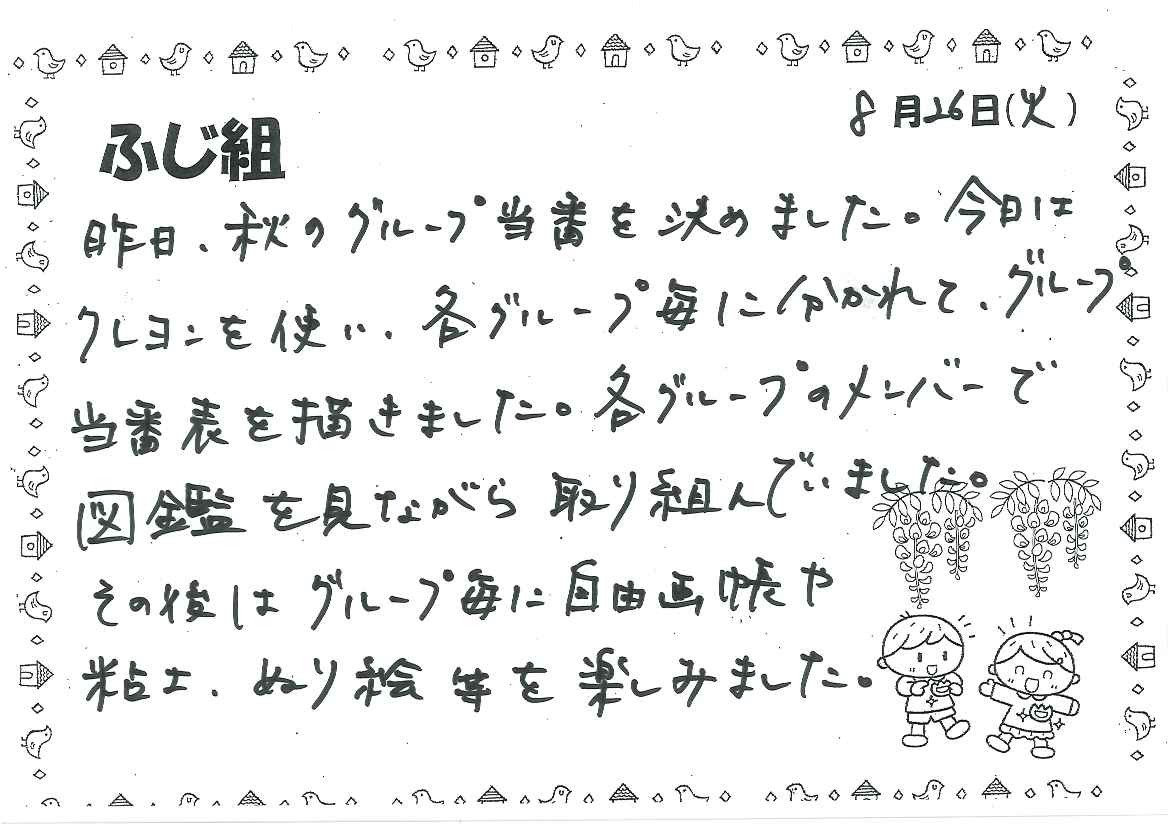 8月26日(火)
ふじ組
昨日、秋のグループ当番を決めました。今日は
クレヨンを使い、各グループ毎に分かれて、グループ
当番表を描きました。各グループのメンバーで
図鑑を見ながら取り組んでいました。
その後はグループ毎に自由画帳や
粘土、ぬり絵等を楽しみました。